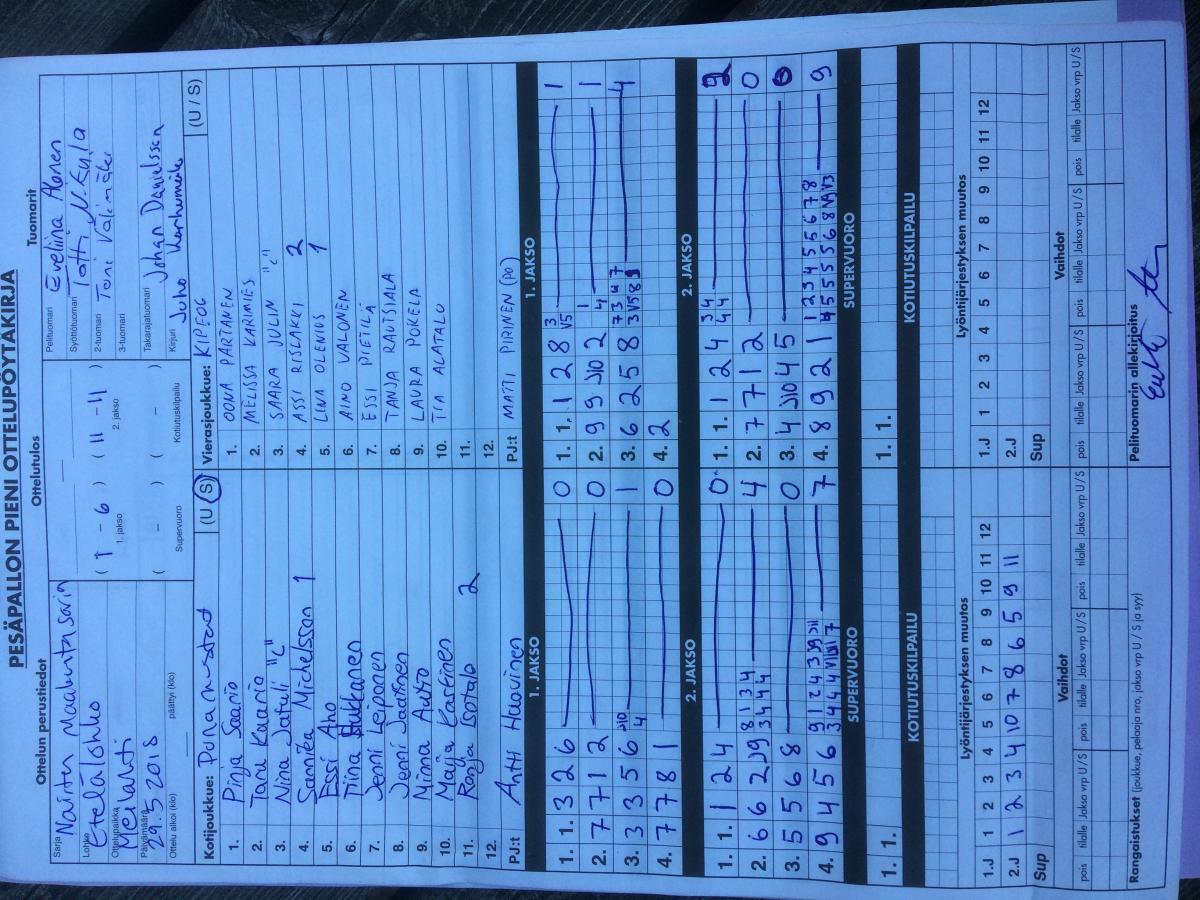 PESÄPALLON PIENI OTTELUPÖYTÄKIRJA
Ottelun perustiedot
Ottelutulos
Tuomarit
Sarja Naisten Maakuntasarja
Lohko Etelälohko
Ottelupaikka
Päivämäärä 29.5.2018
Ottelu alkoi (klo)
päättyi (klo)
( 1 - 6 ) ( 11 - 11 )
1. jakso
2. jakso
( - ) ( - )
Supervuoro
Kotiutuskilpailu
Pelituomari Eveliina Ahonen
Syöttötuomari
2-tuomari Toni Välimäki
3-tuomari
Takarajatuomari Johan Danielsson
Kirjuri Juho
Kotijoukkue: Punamustat (U / S)
1. Pinja Saario
2. Taru Kaario
3. Nina Jatuli "C"
4. Sannréa Michelsson 1
5. Essi Aho
6. Tiina Hukkanen
7. Jenni Leiponen
8. Jenni Jaatinen
9. Minna Autio
10. Maija Kastinen
11. Ronja Isotalo 2
12.
PJ:t Antti Haavinen
Vierasjoukkue: KIPEOG (U / S)
1. OONA PARTANEN
2. MELISSA KARIMIES
3. SAARA JULIN "C"
4. ASSI RISLAKKI 2
5. LINA OLENIUS 1
6. AINO VALONEN
7. ESSI PIETILÄ
8. TANJA RAUTSIALA
9. LAURA POKELA
10. TIA ALATALO
11.
12.
PJ:t MATTI PIRINEN (PO)
1. JAKSO
1. JAKSO
1. 1. 3 2 6 0
2. 7 7 1 2 0
3. 3 3 5 6 J10 4 1
4. 7 7 8 1 0
1. 1. 1 2 8 3 V5 1
2. 9 9 J10 2 1 4 1
3. 6 2 5 8 7 3 4 7 3 V5 8 9 4
4. 2
2. JAKSO
2. JAKSO
1. 1. 1 2 4 0
2. 6 6 2 J9 8 1 3 4 3 4 4 4 4
3. 5 5 6 8 0
4. 9 4 5 6 7
1. 1. 1 2 4 3 4 4 4 2
2. 7 7 1 2 0
3. 4 J10 4 5 0
4. 8 9 2 1 1 2 3 4 5 5 6 7 8 9
SUPERVUORO
SUPERVUORO
1. 1.
1. 1.
KOTIUTUSKILPAILU
KOTIUTUSKILPAILU
Lyöntijärjestyksen muutos
Lyöntijärjestyksen muutos
1.J 1 2 3 4 5 6 7 8 9 10 11 12
2.J 1 2 3 4 10 7 8 6 5 9 11
Sup
1.J 1 2 3 4 5 6 7 8 9 10 11 12
2.J
Sup
Vaihdot
Vaihdot
pois tilalle Jakso vrp U / S pois tilalle Jakso vrp U / S pois tilalle Jakso vrp U / S
pois tilalle Jakso vrp U / S pois tilalle Jakso vrp U / S pois tilalle Jakso vrp U / S
Rangaistukset (joukkue, pelaaja nro, jakso vrp U / S ja syy)
Pelituomarin allekirjoitus